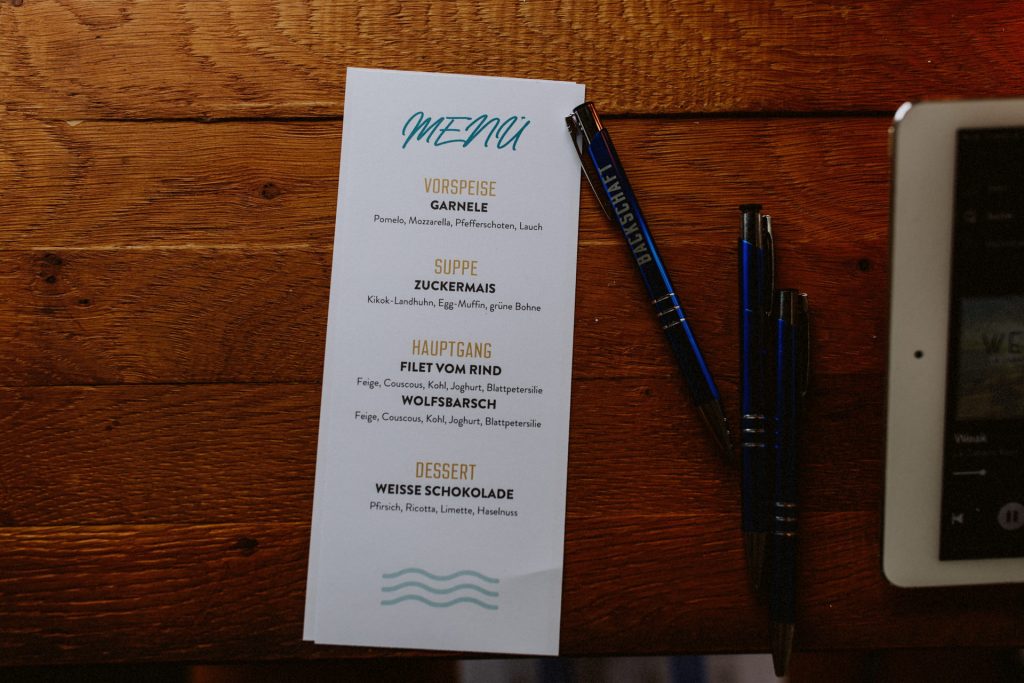 MENÜ
VORSPEISE
GARNELE
Pomelo, Mozzarella, Pfefferschoten, Lauch
SUPPE
ZUCKERMAIS
Kikok-Landhuhn, Egg-Muffin, grüne Bohne
HAUPTGANG
FILET VOM RIND
Feige, Couscous, Kohl, Joghurt, Blattpetersilie
WOLFSBARSCH
Feige, Couscous, Kohl, Joghurt, Blattpetersilie
DESSERT
WEISSE SCHOKOLADE
Pfirsich, Ricotta, Limette, Haselnuss
BACKSCHAFT